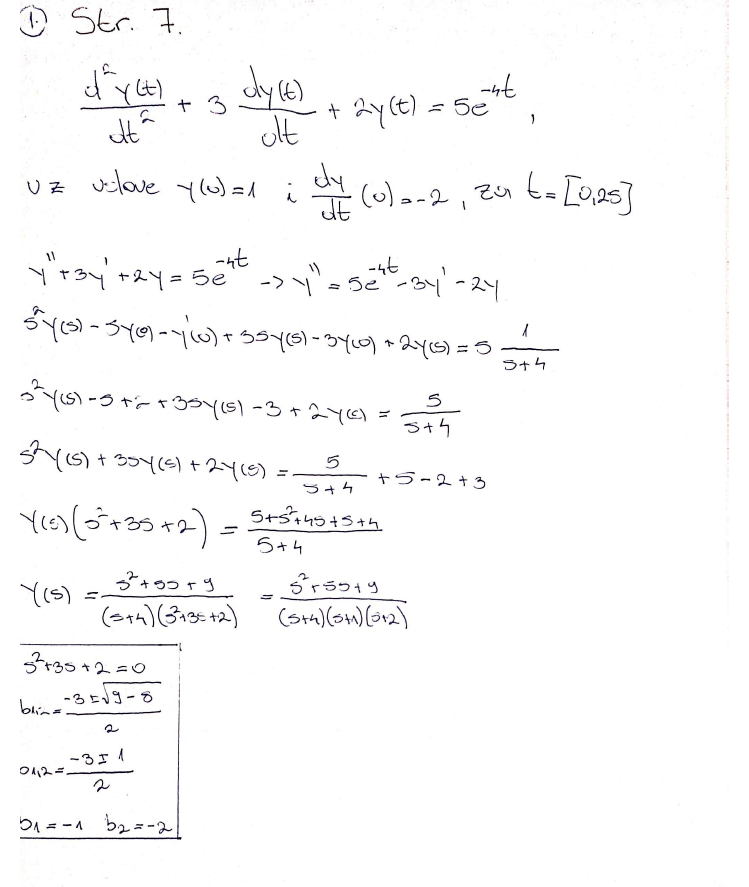 1. Str. 7.
d²y(t)/dt² + 3 dy(t)/dt + 2y(t) = 5e^-4t ,
uz uslove y(0)=1 i dy/dt (0)=-2, za t=[0,25]
y''+3y'+2y=5e^-4t -> y''=5e^-4t-3y'-2y
s²Y(s)-sy(0)-y'(0)+3sY(s)-3y(0)+2Y(s)=5 1/(s+4)
s²Y(s)-s+2+3sY(s)-3+2Y(s)=5/(s+4)
s²Y(s)+3sY(s)+2Y(s)=5/(s+4)+s-2+3
Y(s)(s²+3s+2)=(5+s²+4s+s+4)/(s+4)
Y(s)=(s²+5s+9)/((s+4)(s²+3s+2))=(s²+5s+9)/((s+4)(s+1)(s+2))
s²+3s+2=0
b1,2=(-3±√9-8)/2
b1,2=(-3±1)/2
b1=-1 b2=-2